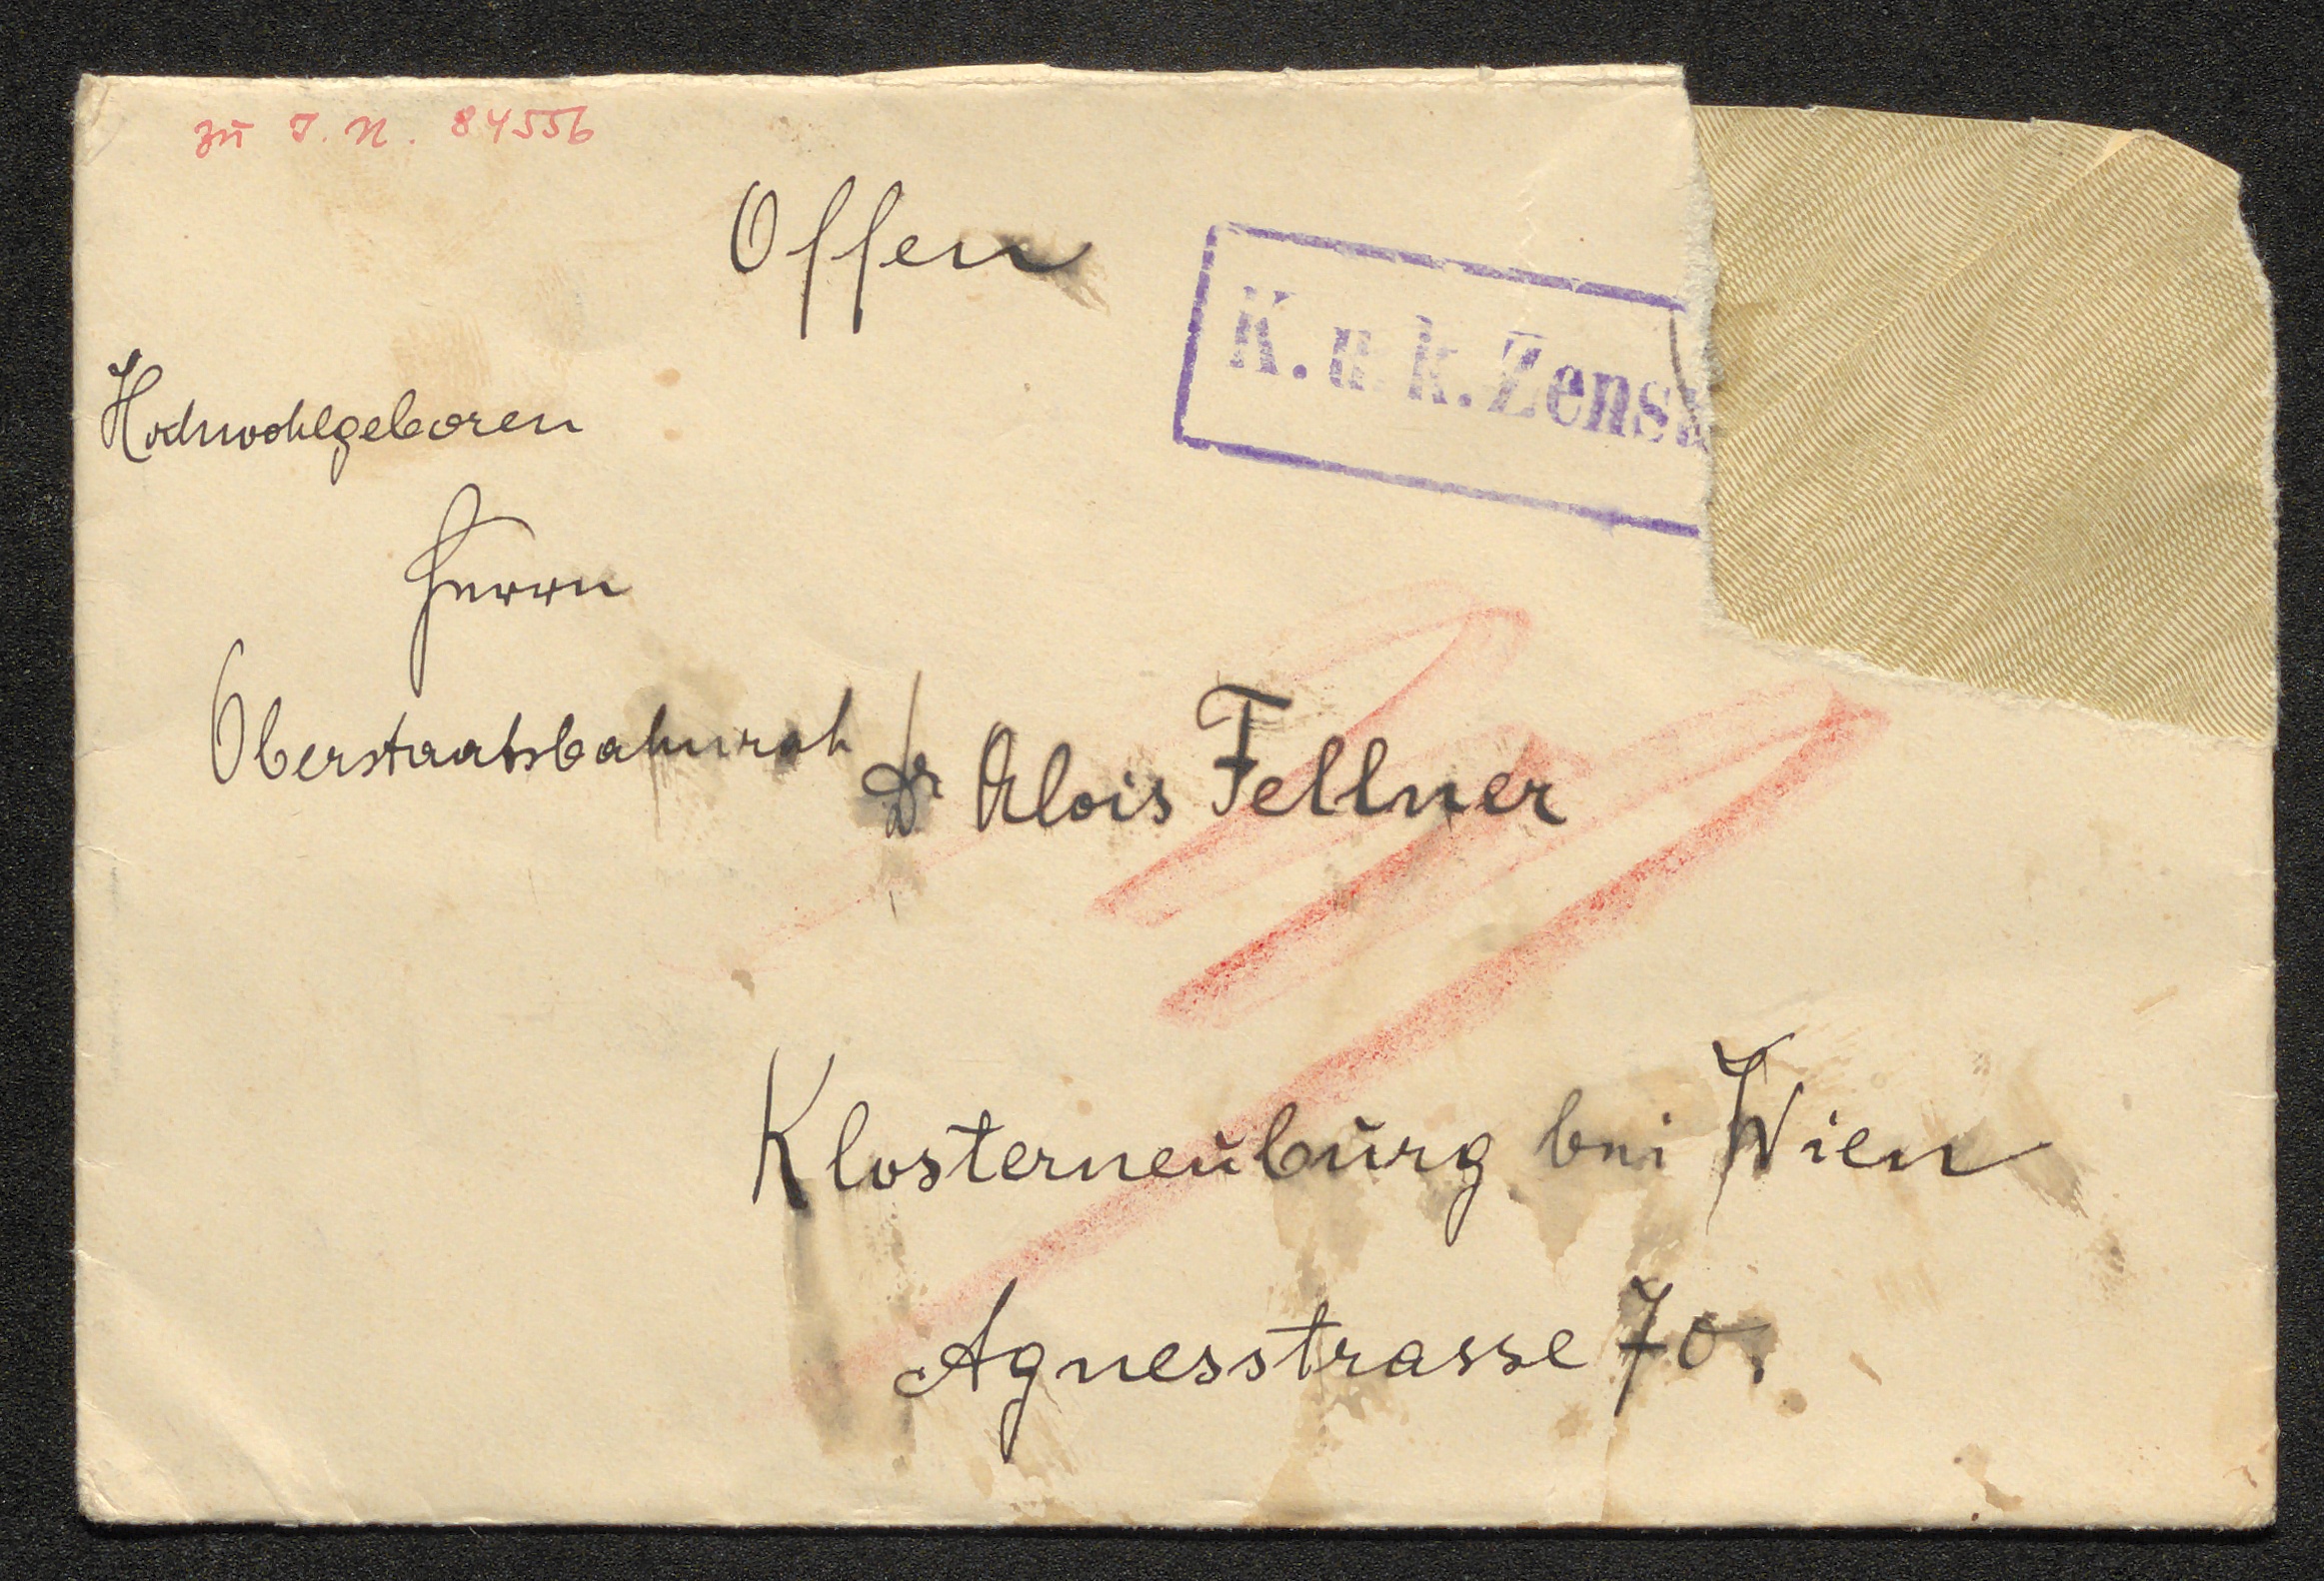 zu I. N. 84556
Offen
K. u. k. Zens
Hochwohlgeboren
Herrn
Oberstaatsbahnrath Dr Alois Fellner
Klosterneuburg bei Wien
Agnesstrasse 70.